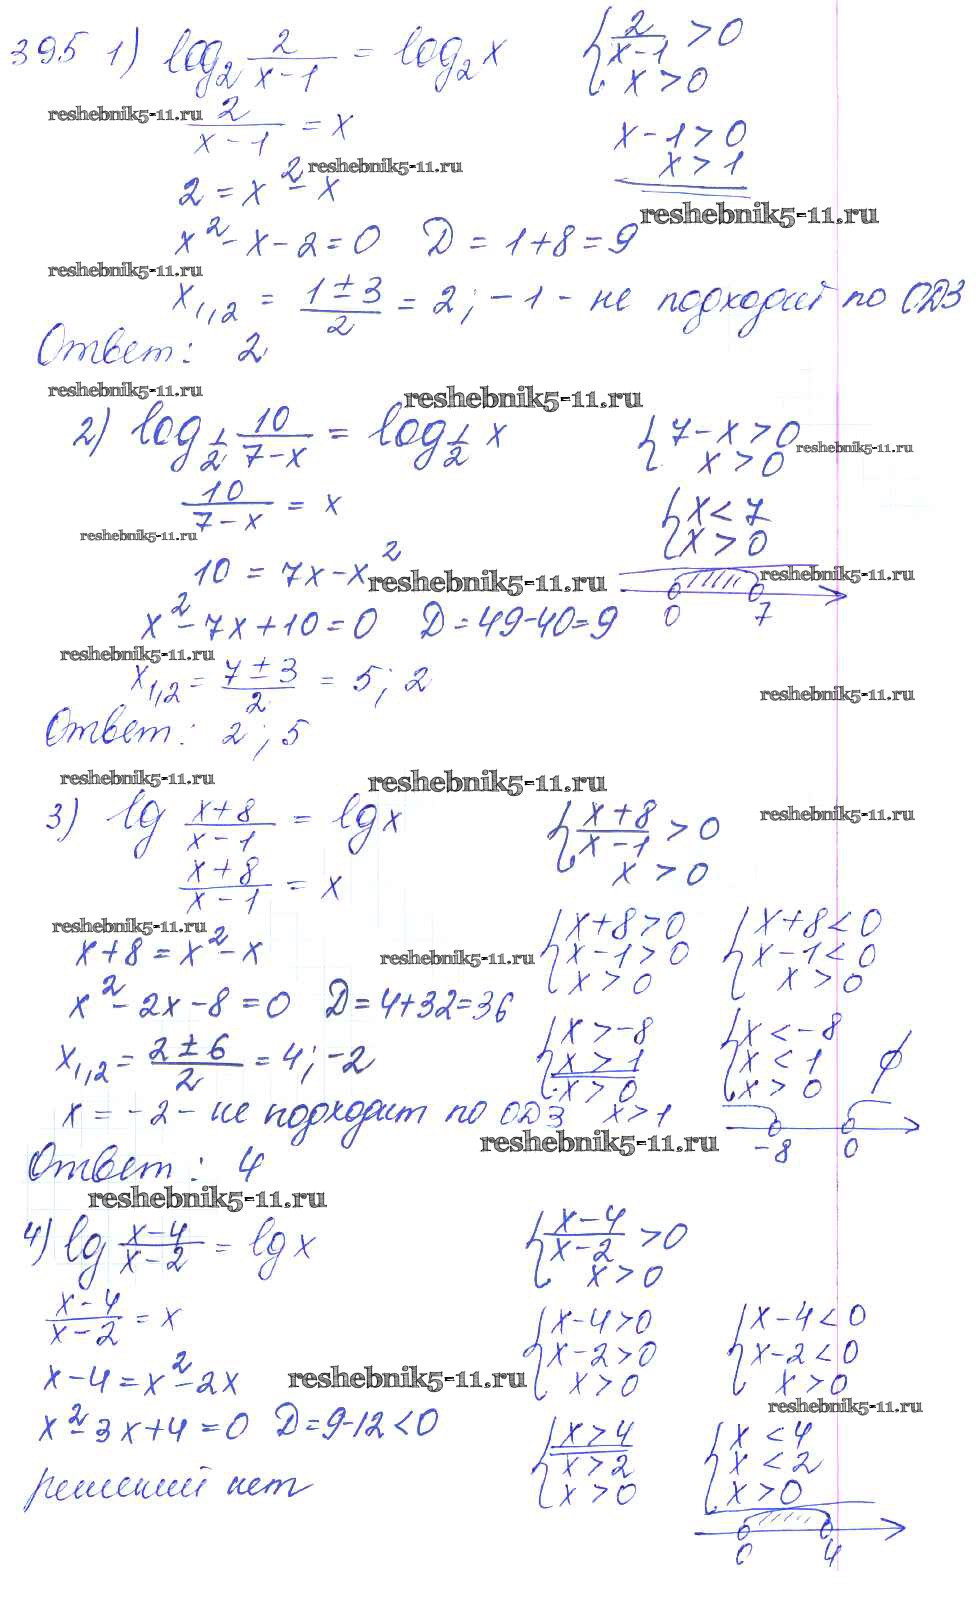 395 1) log₂ 2/(x-1) = log₂ x { 2/(x-1) > 0
x > 0
reshebnik5-11.ru
2/(x-1) = x x-1>0
reshebnik5-11.ru
x>1
2 = x² - x
reshebnik5-11.ru
x² - x - 2 = 0 D = 1+8 = 9
reshebnik5-11.ru
x₁,₂ = (1±3)/2 = 2; -1 - не подходит по ОДЗ
Ответ: 2
reshebnik5-11.ru
reshebnik5-11.ru
2) log_{1/2} 10/(7-x) = log_{1/2} x { 7-x>0
x>0
reshebnik5-11.ru
10/(7-x) = x { x<7
x>0
reshebnik5-11.ru
10 = 7x-x²
reshebnik5-11.ru
reshebnik5-11.ru
0 7
x² - 7x+10=0 D=49-40=9
reshebnik5-11.ru
x₁,₂ = (7±3)/2 = 5; 2
reshebnik5-11.ru
Ответ: 2; 5
reshebnik5-11.ru
reshebnik5-11.ru
3) lg (x+8)/(x-1) = lg x { (x+8)/(x-1) > 0
x > 0
reshebnik5-11.ru
(x+8)/(x-1) = x
reshebnik5-11.ru
{ x+8>0 { x+8<0
x+8 = x² - x x-1>0 x-1<0
reshebnik5-11.ru
x>0 x>0
x² - 2x - 8 = 0 D = 4+32=36
{ x>-8 { x<-8
x₁,₂ = (2±6)/2 = 4; -2 x>1 x<1 ∅
x>0 x>0
x = -2 - не подходит по ОДЗ x>1
-8 0
reshebnik5-11.ru
Ответ: 4
reshebnik5-11.ru
4) lg (x-4)/(x-2) = lg x { (x-4)/(x-2) > 0
x > 0
(x-4)/(x-2) = x { x-4>0 { x-4<0
x-2>0 x-2<0
x-4=x²-2x x>0 x>0
reshebnik5-11.ru
reshebnik5-11.ru
x² - 3x+4=0 D=9-12<0
{ x>4 { x<4
x>2 x<2
решений нет x>0 x>0
0 4